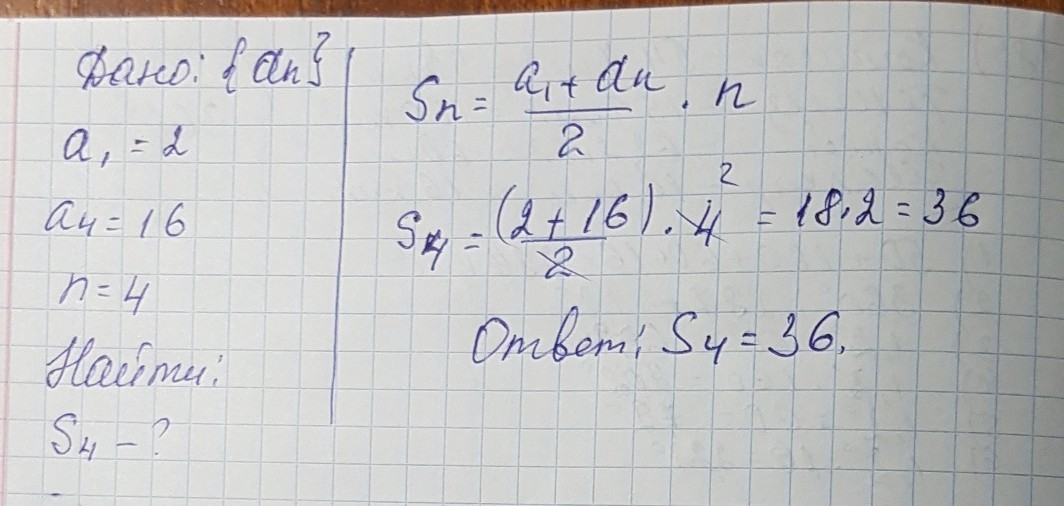 Дано: {an}
a₁ = 2
a₄ = 16
n = 4
Найти:
S₄ - ?
Sn = (a₁ + an)/2 · n
S₄ = (2 + 16)/2 · 4 2 = 18 · 2 = 36
Ответ: S₄ = 36.